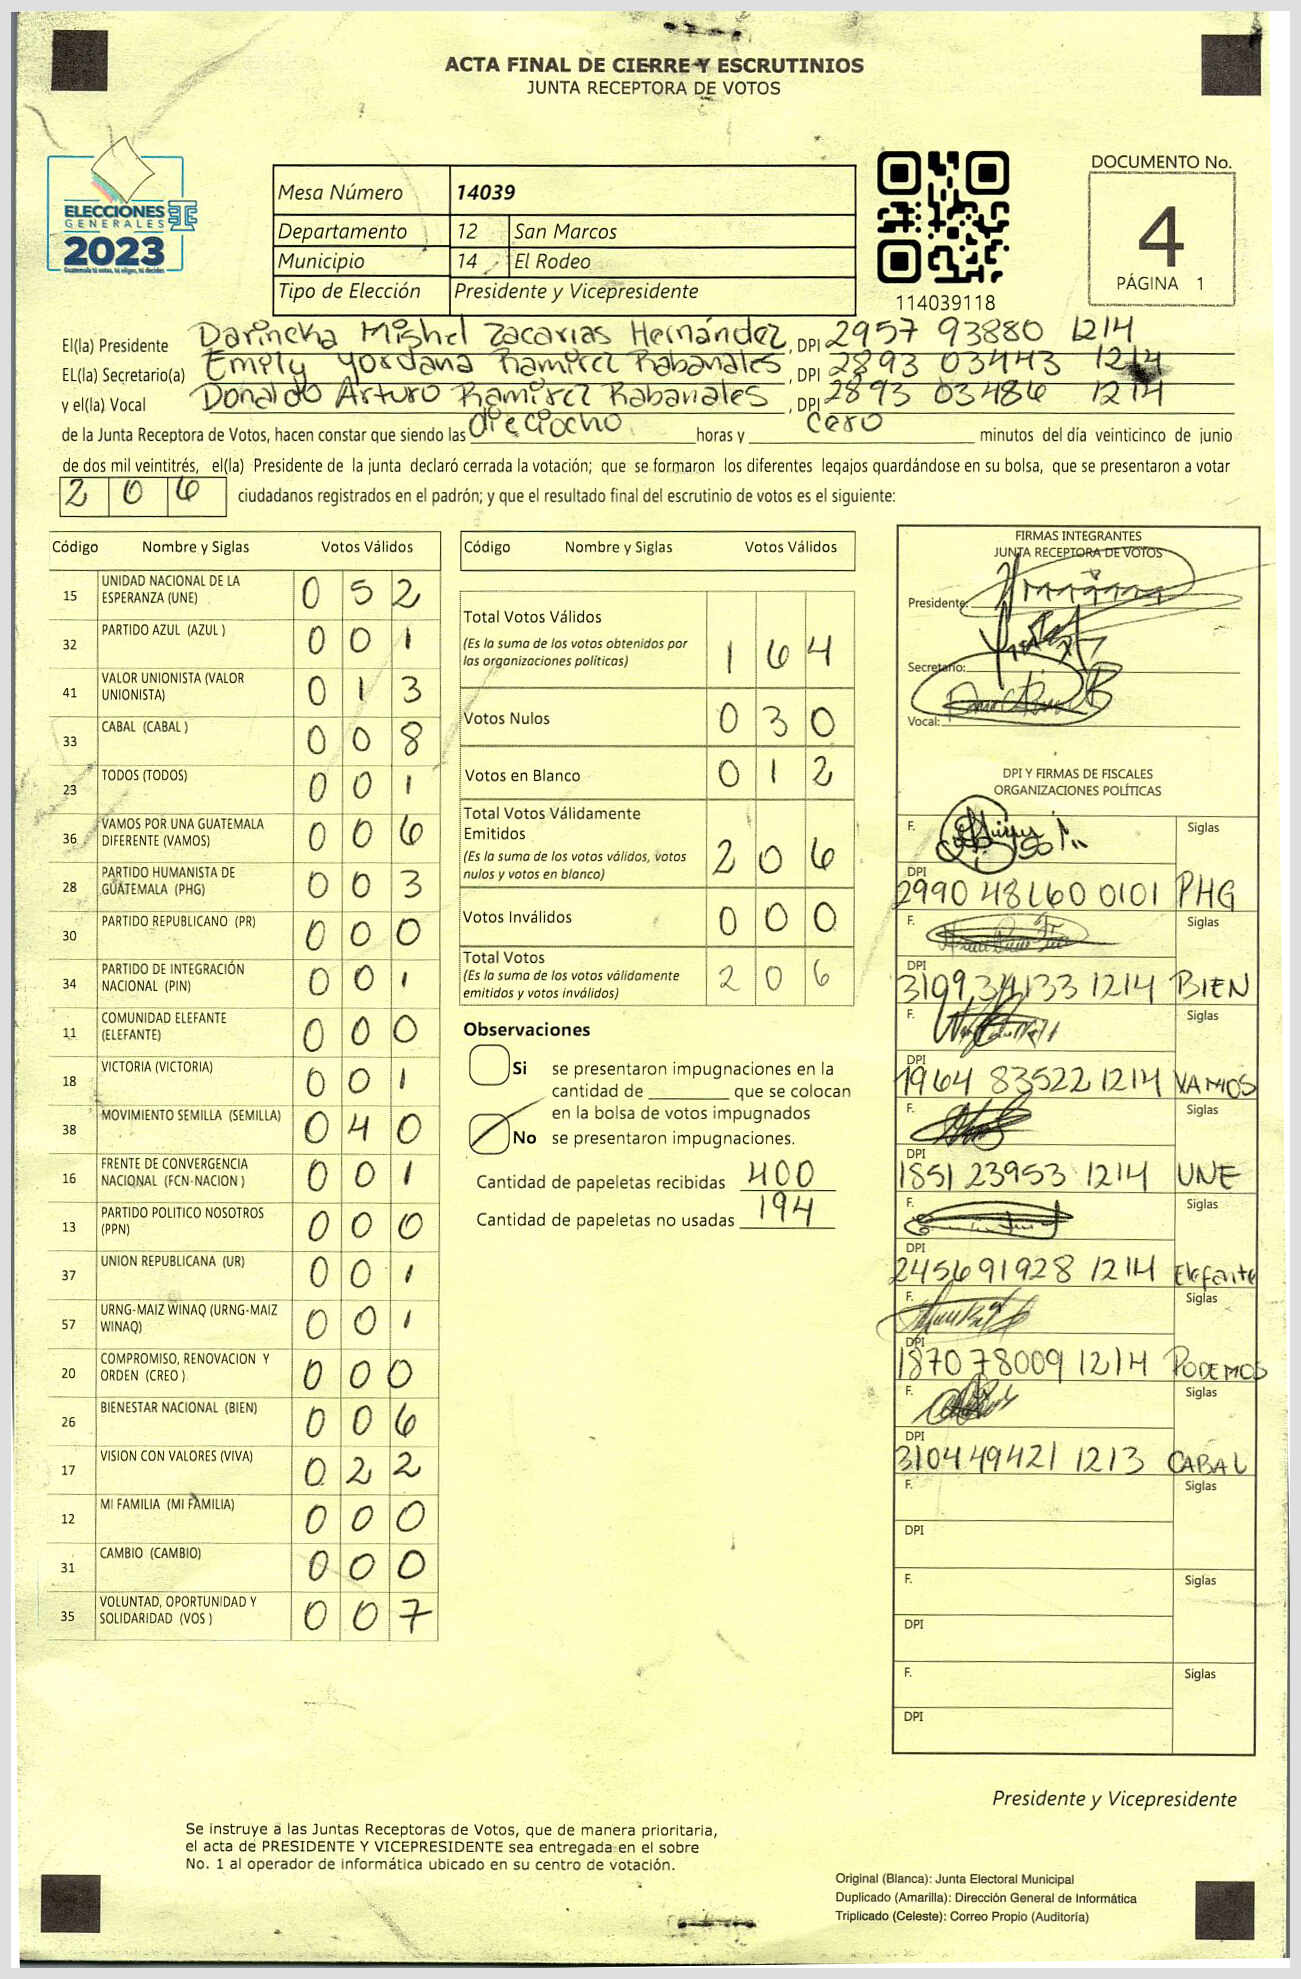 ACTA FINAL DE CIERRE Y ESCRUTINIOS
JUNTA RECEPTORA DE VOTOS
ELECCIONES
GENERALES
2023
Guatemala tú votas, tú eliges, tú decides
Mesa Número 14039
Departamento 12 San Marcos
Municipio 14 El Rodeo
Tipo de Elección Presidente y Vicepresidente
114039118
DOCUMENTO No.
4
PÁGINA 1
El(la) Presidente Darincka Mishel Zacarias Hernández, DPI 2957 93880 1214
EL(la) Secretario(a) Emely Yordana Ramirez Rabanales, DPI 2893 03443 1214
y el(la) Vocal Donaldo Arturo Ramirez Rabanales, DPI 2893 03486 1214
de la Junta Receptora de Votos, hacen constar que siendo las dieciocho horas y cero minutos del día veinticinco de junio
de dos mil veintitrés, el(la) Presidente de la junta declaró cerrada la votación; que se formaron los diferentes legajos guardándose en su bolsa, que se presentaron a votar
206 ciudadanos registrados en el padrón; y que el resultado final del escrutinio de votos es el siguiente:
Código Nombre y Siglas Votos Válidos
15 UNIDAD NACIONAL DE LA ESPERANZA (UNE) 052
32 PARTIDO AZUL (AZUL ) 001
41 VALOR UNIONISTA (VALOR UNIONISTA) 013
33 CABAL (CABAL ) 008
23 TODOS (TODOS) 001
36 VAMOS POR UNA GUATEMALA DIFERENTE (VAMOS) 006
28 PARTIDO HUMANISTA DE GUATEMALA (PHG) 003
30 PARTIDO REPUBLICANO (PR) 000
34 PARTIDO DE INTEGRACIÓN NACIONAL (PIN) 001
11 COMUNIDAD ELEFANTE (ELEFANTE) 000
18 VICTORIA (VICTORIA) 001
38 MOVIMIENTO SEMILLA (SEMILLA) 040
16 FRENTE DE CONVERGENCIA NACIONAL (FCN-NACION ) 001
13 PARTIDO POLITICO NOSOTROS (PPN) 000
37 UNION REPUBLICANA (UR) 001
57 URNG-MAIZ WINAQ (URNG-MAIZ WINAQ) 001
20 COMPROMISO, RENOVACION Y ORDEN (CREO ) 000
26 BIENESTAR NACIONAL (BIEN) 006
17 VISION CON VALORES (VIVA) 022
12 MI FAMILIA (MI FAMILIA) 000
31 CAMBIO (CAMBIO) 000
35 VOLUNTAD, OPORTUNIDAD Y SOLIDARIDAD (VOS ) 007
Código Nombre y Siglas Votos Válidos
Total Votos Válidos 164
(Es la suma de los votos obtenidos por
las organizaciones políticas)
Votos Nulos 030
Votos en Blanco 012
Total Votos Válidamente
Emitidos 206
(Es la suma de los votos válidos, votos
nulos y votos en blanco)
Votos Inválidos 000
Total Votos 206
(Es la suma de los votos válidamente
emitidos y votos inválidos)
Observaciones
Si se presentaron impugnaciones en la
cantidad de ________ que se colocan
en la bolsa de votos impugnados
No se presentaron impugnaciones.
Cantidad de papeletas recibidas 400
Cantidad de papeletas no usadas 194
FIRMAS INTEGRANTES
JUNTA RECEPTORA DE VOTOS
Presidente:
Secretario:
Vocal:
DPI Y FIRMAS DE FISCALES
ORGANIZACIONES POLÍTICAS
F. Siglas
DPI
2990 48160 0101 PHG
F. Siglas
DPI
3109 34133 1214 BIEN
F. Siglas
DPI
1964 83522 1214 VAMOS
F. Siglas
DPI
1851 23953 1214 UNE
F. Siglas
DPI
245691928 1214 Elefante
F. Siglas
DPI
187078009 1214 PODEMOS
F. Siglas
DPI
310449421 1213 CABAL
F. Siglas
DPI
F. Siglas
DPI
F. Siglas
DPI
Presidente y Vicepresidente
Se instruye a las Juntas Receptoras de Votos, que de manera prioritaria,
el acta de PRESIDENTE Y VICEPRESIDENTE sea entregada en el sobre
No. 1 al operador de informática ubicado en su centro de votación.
Original (Blanca): Junta Electoral Municipal
Duplicado (Amarilla): Dirección General de Informática
Triplicado (Celeste): Correo Propio (Auditoría)